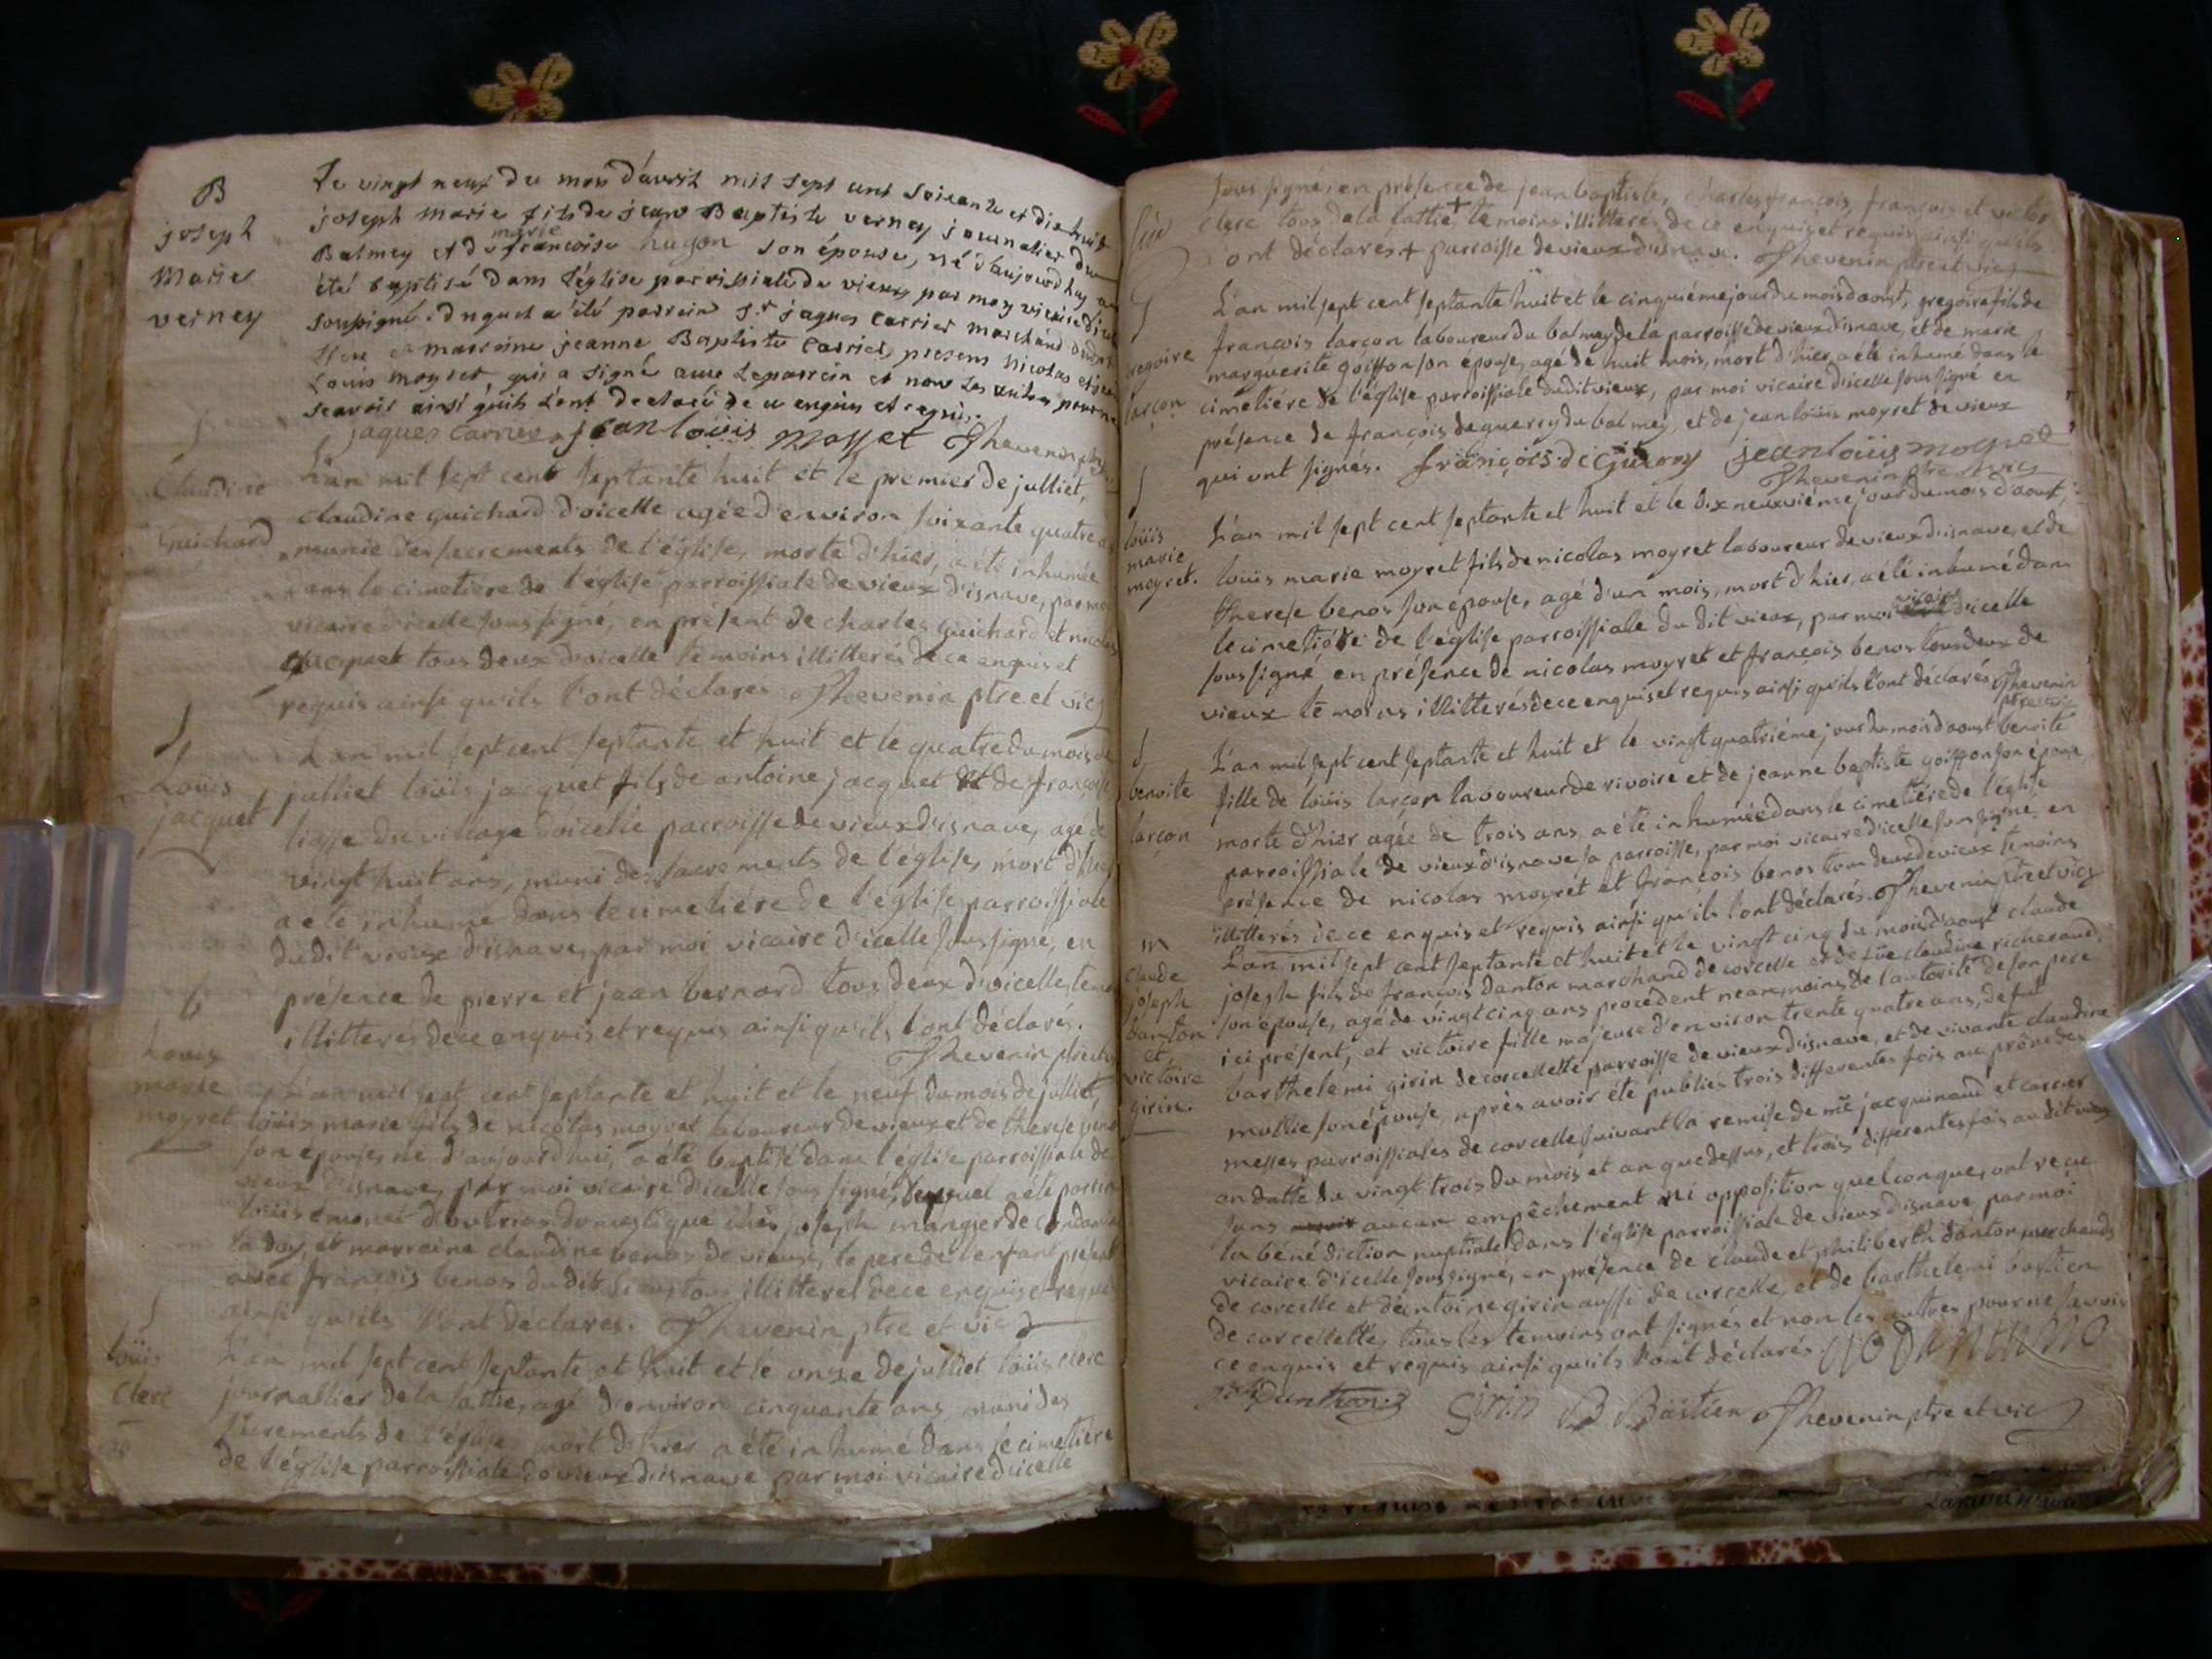 B
joseph
Marie
verney
Le vingt neuf du mois d'avril mil sept cent soixante et dix huit
joseph marie fils de jean Baptiste verney journalier du
Balmey et de marie francoise hugon son épouse, né d'aujourd'huy a
été baptisé dans l'église parroissiale de vieux par moy vicaire d'icelle
soussigné. duquel a été parrein sr jaques carrier marchand
et marreine jeanne Baptiste carrier, presens nicolas et jean
Louis moyret, qui a signé avec le parrein et non les autres pour ne
scavoir ainsi quils l'ont declaré de ce enquis et requis.
jaques carrier jean louis Moyret Thevenin
Claudine
Guichard
L'an mil sept cent septante huit et le premier de julliet,
claudine guichard d'oicelle agée d'environ soixante quatre ans
munie des sacrements de l'église, morte d'hier, a été inhumée
dans le cimetiere de l'église parroissiale de vieux d'isnave, par moi
vicaire d'icelle soussigné, en présent de charles guichard et nicolas
jacquet tous deux d'oicelle témoins illitterés de ce enquis et
requis ainsi qu'ils l'ont déclarés Thevenin ptre et vic
Louis
jacquet
L'an mil sept cent septante et huit et le quatre du mois de
julliet loüis jacquet fils de antoine jacquet et de françoise
du village d'oicelle parroisse de vieux d'isnave, agé de
vingt huit ans, muni des sacrements de l'église, mort d'hier
a été inhumé dans le cimetiére de l'église parroissiale
du dit vieux d'isnave, par moi vicaire d'icelle soussigné, en
présence de pierre et jean bernard tous deux d'oicelle, temoins
illitterés de ce enquis et requis ainsi qu'ils l'ont déclarés.
Thevenin ptre et vic
b
Louis
marie
moyret
L'an mil sept cent septante et huit et le neuf du mois de julliet,
loüis marie fils de nicolas moyret laboureur de vieux et de therese benos
son épouse, né d'aujourd'hui, a été baptisé dans l'église parroissiale de
vieux d'isnave, par moi vicaire d'icelle soussigné, duquel a été parrein
loüis domestique chés joseph
et marreine claudine benos de vieux, le pere de l'enfant présent
avec françois benos du dit vieux tous illitterés de ce enquis et requis
ainsi qu'ils l'ont déclarés. Thevenin ptre et vic
loüis
clerc
L'an mil sept cent septante et huit et le onze de julliet loüis clerc
journallier de la lattie, agé d'environ cinquante ans, muni des
sacrements de l'église mort d'hier a été inhumé dans le cimetiére
de l'église parroissiale de vieux d'isnave par moi vicaire d'icelle
soussigné, en présence de jean baptiste, charles françois, françois et victor
clerc tous de la lattie + témoins illitterés de ce enquis et requis ainsi qu'ils
ont déclarés + parroisse de vieux d'isnave. Thevenin ptre et vic
gregoire
larçon
L'an mil sept cent septante huit et le cinquiéme jour du mois d'aoust, gregoire fils de
françois larçon laboureur du balmey de la parroisse de vieux d'isnave, et de marie
marguerite goiffon son épouse, agé de huit mois, mort d'hier, a été inhumé dans le
cimetiére de l'église parroissiale du dit vieux, par moi vicaire d'icelle soussigné en
présence de françois deguerry du balmey, et de jean loüis moyret de vieux
qui ont signés. françois deguerry jean louis moyret
Thevenin ptre et vic
loüis
marie
moyret.
L'an mil sept cent septante et huit et le dix neuviéme jour du mois d'aoust,
loüis marie moyret fils de nicolas moyret laboureur de vieux d'isnave, et de
therese benos son épouse, agé d'un mois, mort d'hier, a été inhumé dans
le cimetiére de l'église parroissiale du dit vieux, par moi vicaire d'icelle
soussigné en présence de nicolas moyret et françois benos tous deux de
vieux témoins illitterés de ce enquis et requis ainsi qu'ils l'ont déclarés Thevenin
ptre et vic
benoite
larçon
L'an mil sept cent septante et huit et le vingt quatriéme jour du mois d'aoust benoite
fille de loüis larçon laboureur de rivoire et de jeanne baptiste goiffon son épouse
morte d'hier agée de trois ans, a été inhumée dans le cimetiére de l'église
parroissiale de vieux d'isnave sa parroisse, par moi vicaire d'icelle soussigné, en
présence de nicolas moyret et françois benos tous deux de vieux témoins
illitterés de ce enquis et requis ainsi qu'ils l'ont déclarés. Thevenin ptre et vic
m
claude
joseph
danton
et
victoire
girin.
L'an mil sept cent septante et huit et le vingt cinq du mois d'aoust claude
joseph fils de françois danton marchand de corcelle et de claudine richerand,
son épouse, agé de vingt cinq ans procédent neanmoins de l'autorité de son pere
ici présent, et victoire fille majeure d'environ trente quatre ans, de fut
barthelemi girin de corcellette parroisse de vieux d'isnave, et de vivante claudine
mollie son épouse, après avoir été publiés trois differentes fois au prône des
messes parroissiales de corcelle suivant la remise de mre jacquinaud et carrier
en datte du vingt trois du mois et an que dessus, et trois differentes fois au dit vieux
sans aucun empêchement ni opposition quelconque, ont reçu
la bénédiction nuptiale dans l'église parroissiale de vieux d'isnave par moi
vicaire d'icelle soussigné, en présence de claude et philiberth danton marchands
de corcelle et d'antoine girin aussi de corcelle, et de barthelemi bastien
de corcellette, tous les témoins ont signés et non les autres pour ne savoir
ce enquis et requis ainsi qu'ils l'ont déclarés
Danthon Girin B Bastien Thevenin ptre et vic